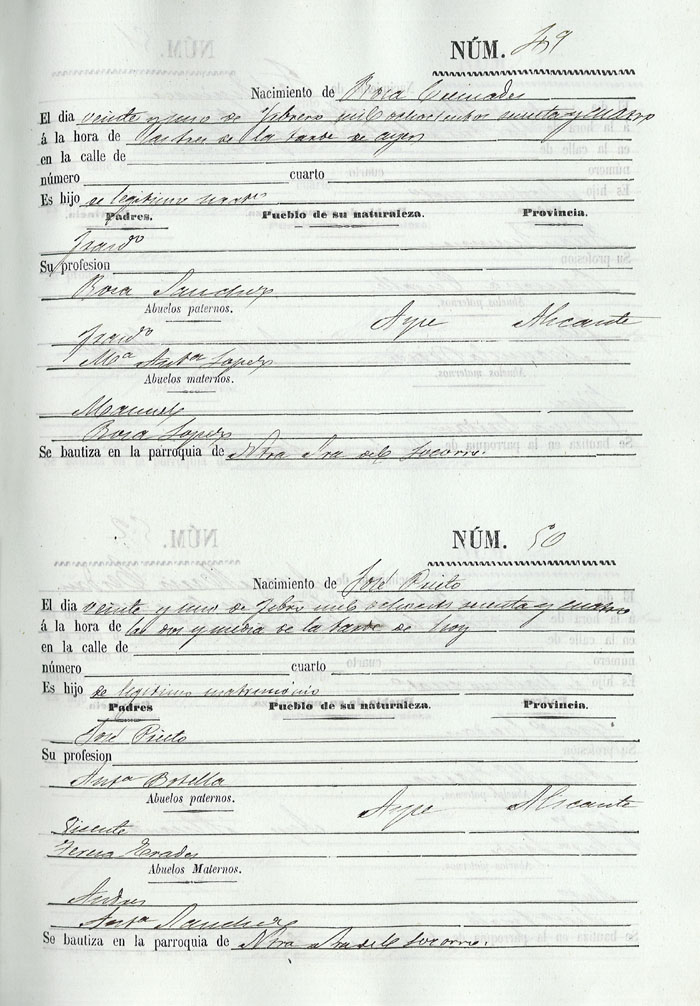 NÚM. 49
Nacimiento de Rosa
El dia veinte y uno de Febrero mil ochocientos y cuatro
á la hora de las tres de la tarde de ayer
en la calle de
número cuarto
Es hijo de legitimo
Padres. Pueblo de su naturaleza. Provincia.
Franco
Su profesion
Rosa Sanchez
Abuelos paternos.
Aspe Alicante
Franco
Mª Antª Lopez
Abuelos maternos.
Manuel
Rosa Lopez
Se bautiza en la parroquia de Ntra Sra del Socorro.
NÚM. 50
Nacimiento de José Prieto
El dia veinte y uno de Febro mil y cuatro
á la hora de las dos y media de la tarde de hoy
en la calle de
número cuarto
Es hijo de legitimo matrimonio
Padres Pueblo de su naturaleza. Provincia.
José Prieto
Su profesion
Antª Botella
Abuelos paternos.
Aspe Alicante
Vicente
Teresa
Abuelos Maternos.
Andres
Antª Sanchez
Se bautiza en la parroquia de Ntra Sra del Socorro.